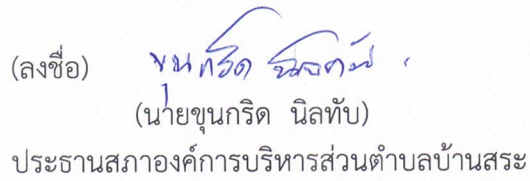 (ลงชื่อ) ขุนกริด นิลทับ
(นายขุนกริด นิลทับ)
ประธานสภาองค์การบริหารส่วนตำบลบ้านสระ